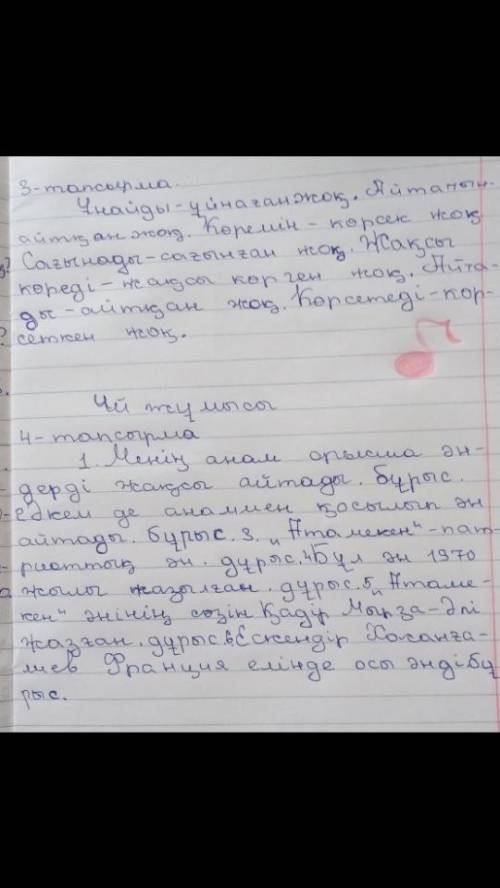 3-тапсырма.
Ұнайды-ұйнағанжоқ. Айтамын-
айтқан жоқ. Көремін - көрсек жоқ
Сағынады-сағынған жоқ. Жақсы
көреді - жақсы көрген жоқ. Айта-
ды - айтқан жоқ. Көрсетеді-көр-
сеткен жоқ.
Үй жұмысы
4-тапсырма
1. Менің анам орысша ән-
дерді жақсы айтады. бұрыс.
Әкем де анаммен қосылып ән
айтады. бұрыс. 3. „Атамекен"-пат-
риоттық ән. дұрыс. 4 Бұл ән 1970
жылы жазылған. дұрыс. 5. „Атаме-
кен" әнінің сөзін Қадір Мырза-Әлі
жазған. дұрыс. 6 Ескендір Хасанға-
лиев Франция елінде осы әнді бұ
рыс.